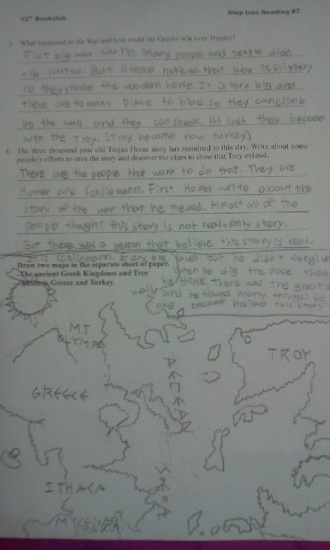 12th Bookclub
Step Into Reading #7
3. What happened to the War and how could the Greeks win over Trojans?
First big war starts. Many people and people died
and hurted. But Greece noticed that war is slippery
so they made the wooden horse. It is very big and
there are to many place to hide. So they can climb
up the wall and they can sneak. At last they became
win the Troy. (Troy became now turkey)
4. The three thousand year old Trojan Horse story has remained to this day. Write about some
people's efforts to save the story and discover the clues to show that Troy existed.
There are the people that want to do that. They are
Homer and Schliemann. First Homer write about the
story of the war that he heard. Almost all of the
people thought this story is not real only story.
But there was a person that believe this story is real.
Schliemann. Everyone but he didn't
Draw two maps in the separate sheet of paper.
when he dig the place that
The ancient Greek Kingdoms and Troy
he think. There was the great
Modern Greece and Turkey.
wall and he found many things. So
became believe this story.
MT
OLYMPUS
AEGEAN
TROY
GREECE
ITHACA